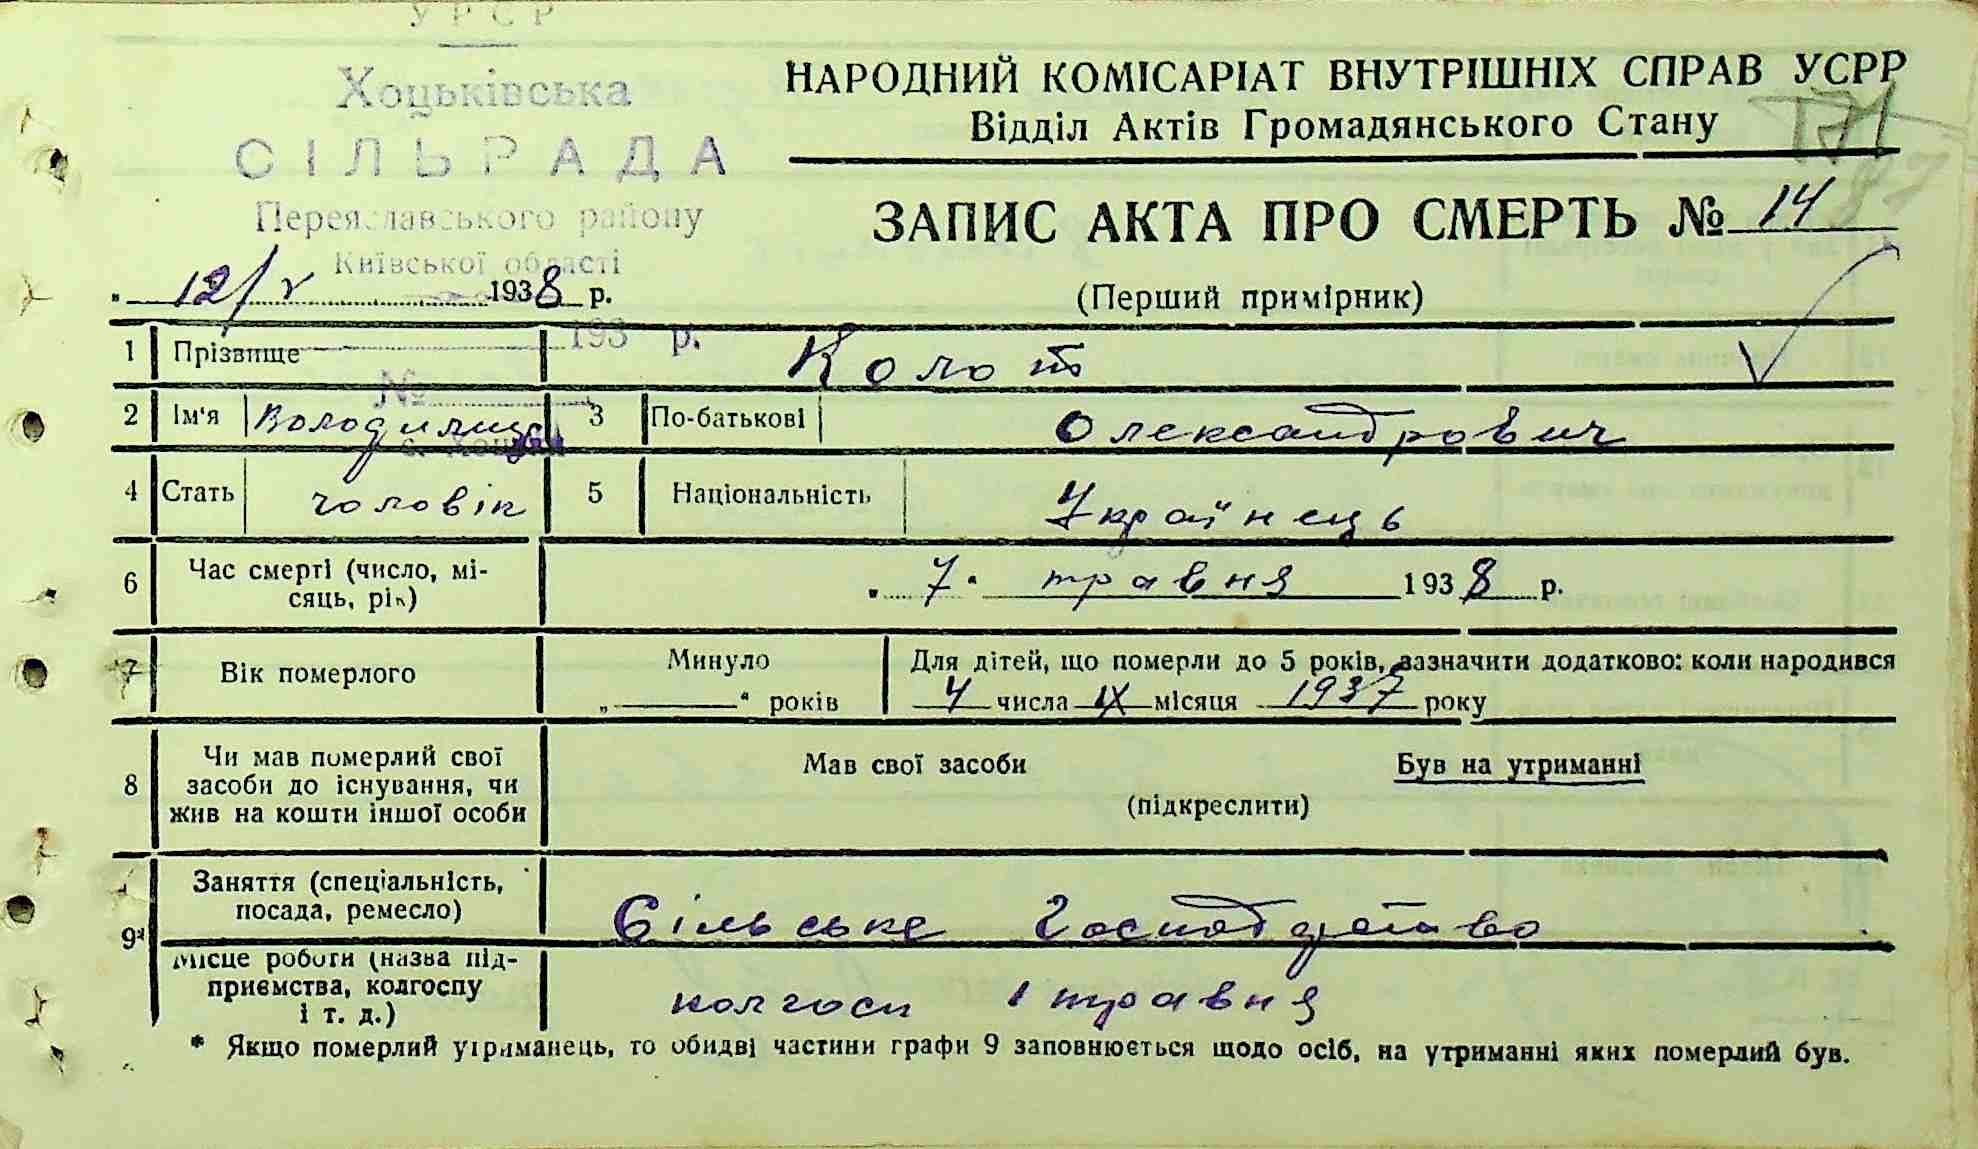 УРСР
Хоцьківська
СІЛЬРАДА
Переяславського району
Київської області
193 р.
№
НАРОДНИЙ КОМІСАРІАТ ВНУТРІШНІХ СПРАВ УСРР
Відділ Актів Громадянського Стану
ЗАПИС АКТА ПРО СМЕРТЬ № 14
(Перший примірник)
„ 12/V 1938 р.
1 Прізвище Колот
2 Ім'я Володимир 3 По-батькові Олександрович
4 Стать чоловік 5 Національність Українець
6 Час смерті (число, мі-
сяць, рік) „ 7 " травня 1938 р.
7 Вік померлого Минуло
„ — " років
Для дітей, що померли до 5 років, зазначити додатково: коли народився
4 числа IX місяця 1937 року
8 Чи мав померлий свої
засоби до існування, чи
жив на кошти іншої особи
Мав свої засоби Був на утриманні
(підкреслити)
9* Заняття (спеціальність,
посада, ремесло) Сільське Господарство
Місце роботи (назва під-
приємства, колгоспу
і т. д.) колгосп 1 травня
* Якщо померлий утриманець, то обидві частини графи 9 заповнюється щодо осіб, на утриманні яких померлий був.